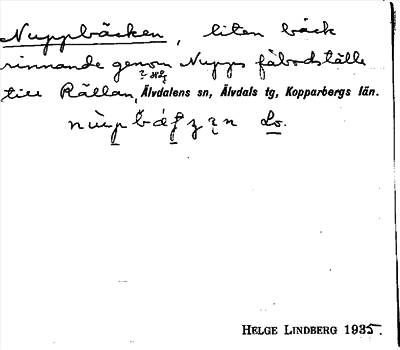 Nuppbäcken, liten bäck
rinnande genom Nupps fäbodställe
till Rällan, Älvdalens sn, Älvdals tg, Kopparbergs län.
Lo.
HELGE LINDBERG 1935.